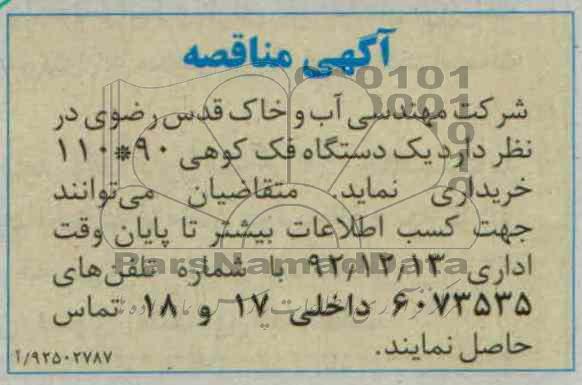 آگهی مناقصه
شرکت مهندسی آب و خاک قدس رضوی در
نظر دارد یک دستگاه فک کوهی ۹۰*۱۱۰
خریداری نماید. متقاضیان می‌توانند
جهت کسب اطلاعات بیشتر تا پایان وقت
اداری ۹۲/۱۲/۱۳ با شماره تلفن‌های
۶۰۷۳۵۳۵ داخلی ۱۷ و ۱۸ تماس
حاصل نمایند.
۹۲۵۰۲۷۸۷/آ
ParsNamadData